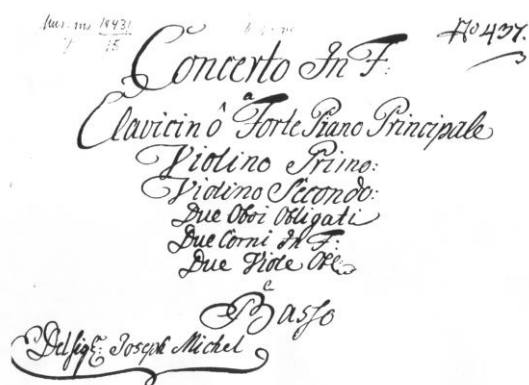 Mus. ms 18431
15
No 437.
Concerto In F:
a
Clavicin ô Forte Piano Principale
Violino Primo:
Violino Secondo:
Due Oboi Obligati
Due Corni In F:
Due Viole Obl:
e
Basso
Del Sigre: Joseph Michel